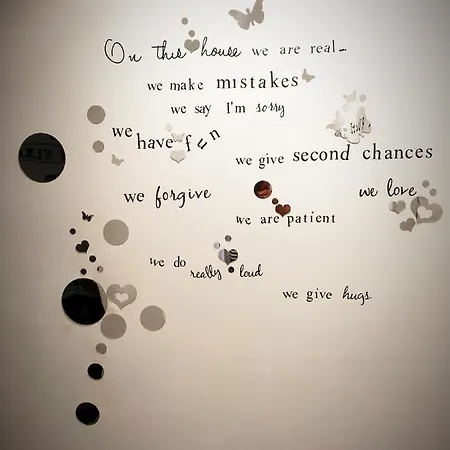 On this house we are real-
we make mistakes
we say I'm sorry
we have fun
we give second chances
we forgive
we love
we are patient
we do really loud
we give hugs